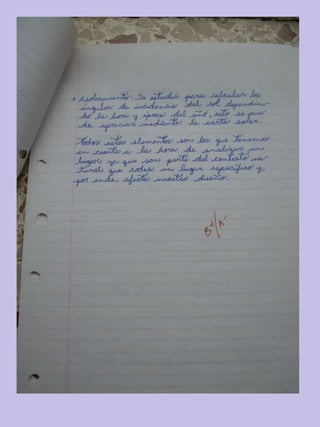 * Asoleamiento: Se estudia para calcular los
ángulos de incidencia del sol dependien-
do la hora y época del año, esto se pue-
de apreciar mediante la carta solar.
Todos estos elementos son los que tenemos
en cuenta a la hora de analizar un
lugar ya que son parte del contexto na-
tural que rodea un lugar específico y,
por ende, afecta nuestro diseño.
B+/A-